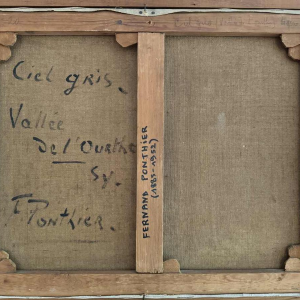 Ciel gris.
Vallée
De l'Ourthe
Sy.
F Ponthier.
FERNAND PONTHIER
(1885-1952)